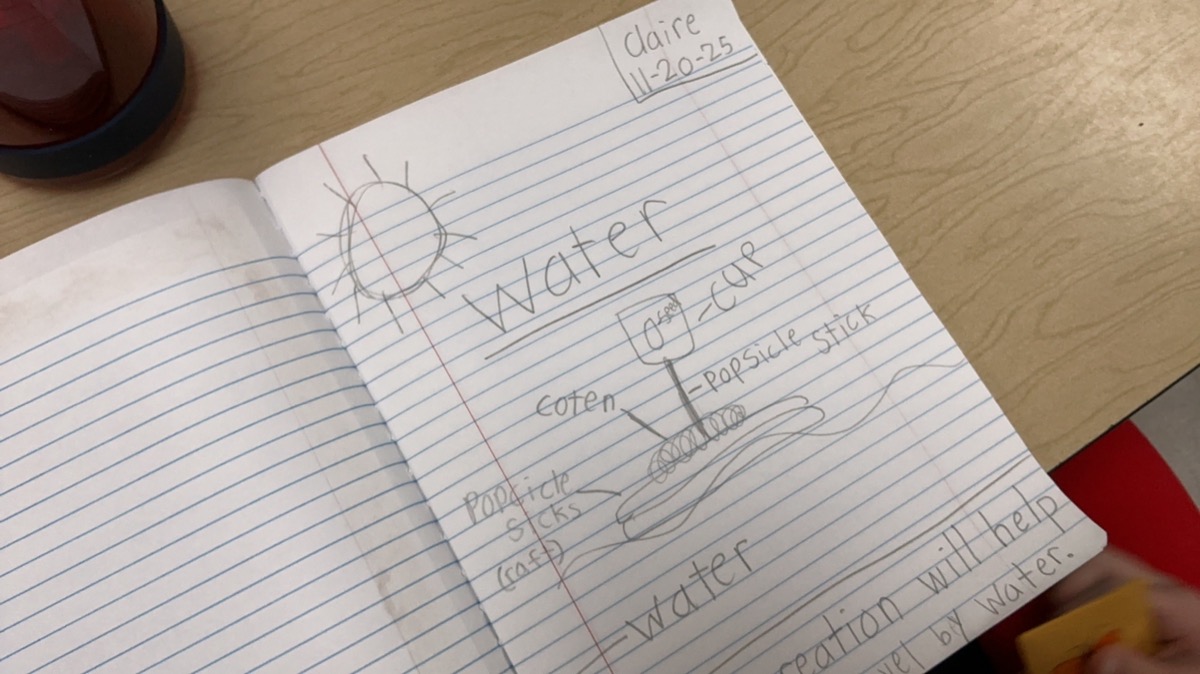 Claire
11-20-25
Water
seed
-cup
-popsicle stick
coten
Popcicle
sicks
(raft)
-water
reation will help
vel by Water.